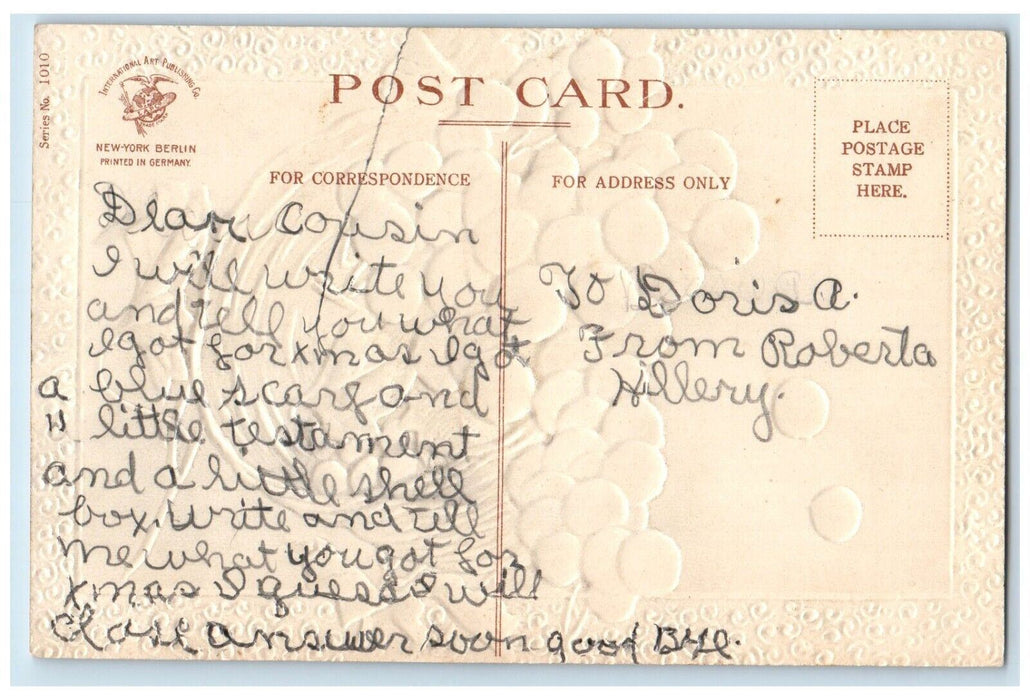 Series No. 1010
INTERNATIONAL ART PUBLISHING CO.
TRADE MARK
NEW-YORK BERLIN
PRINTED IN GERMANY.
POST CARD.
FOR CORRESPONDENCE
Dear Cousin
I will write you
and tell you what
I got for xmas I got
a blue scarf and
" little testament
and a little shell
box. Write and tell
me what you got for
xmas I guess I will
close answer soon good Bye.
FOR ADDRESS ONLY
To Doris A.
From Roberta
Hillery.
PLACE
POSTAGE
STAMP
HERE.